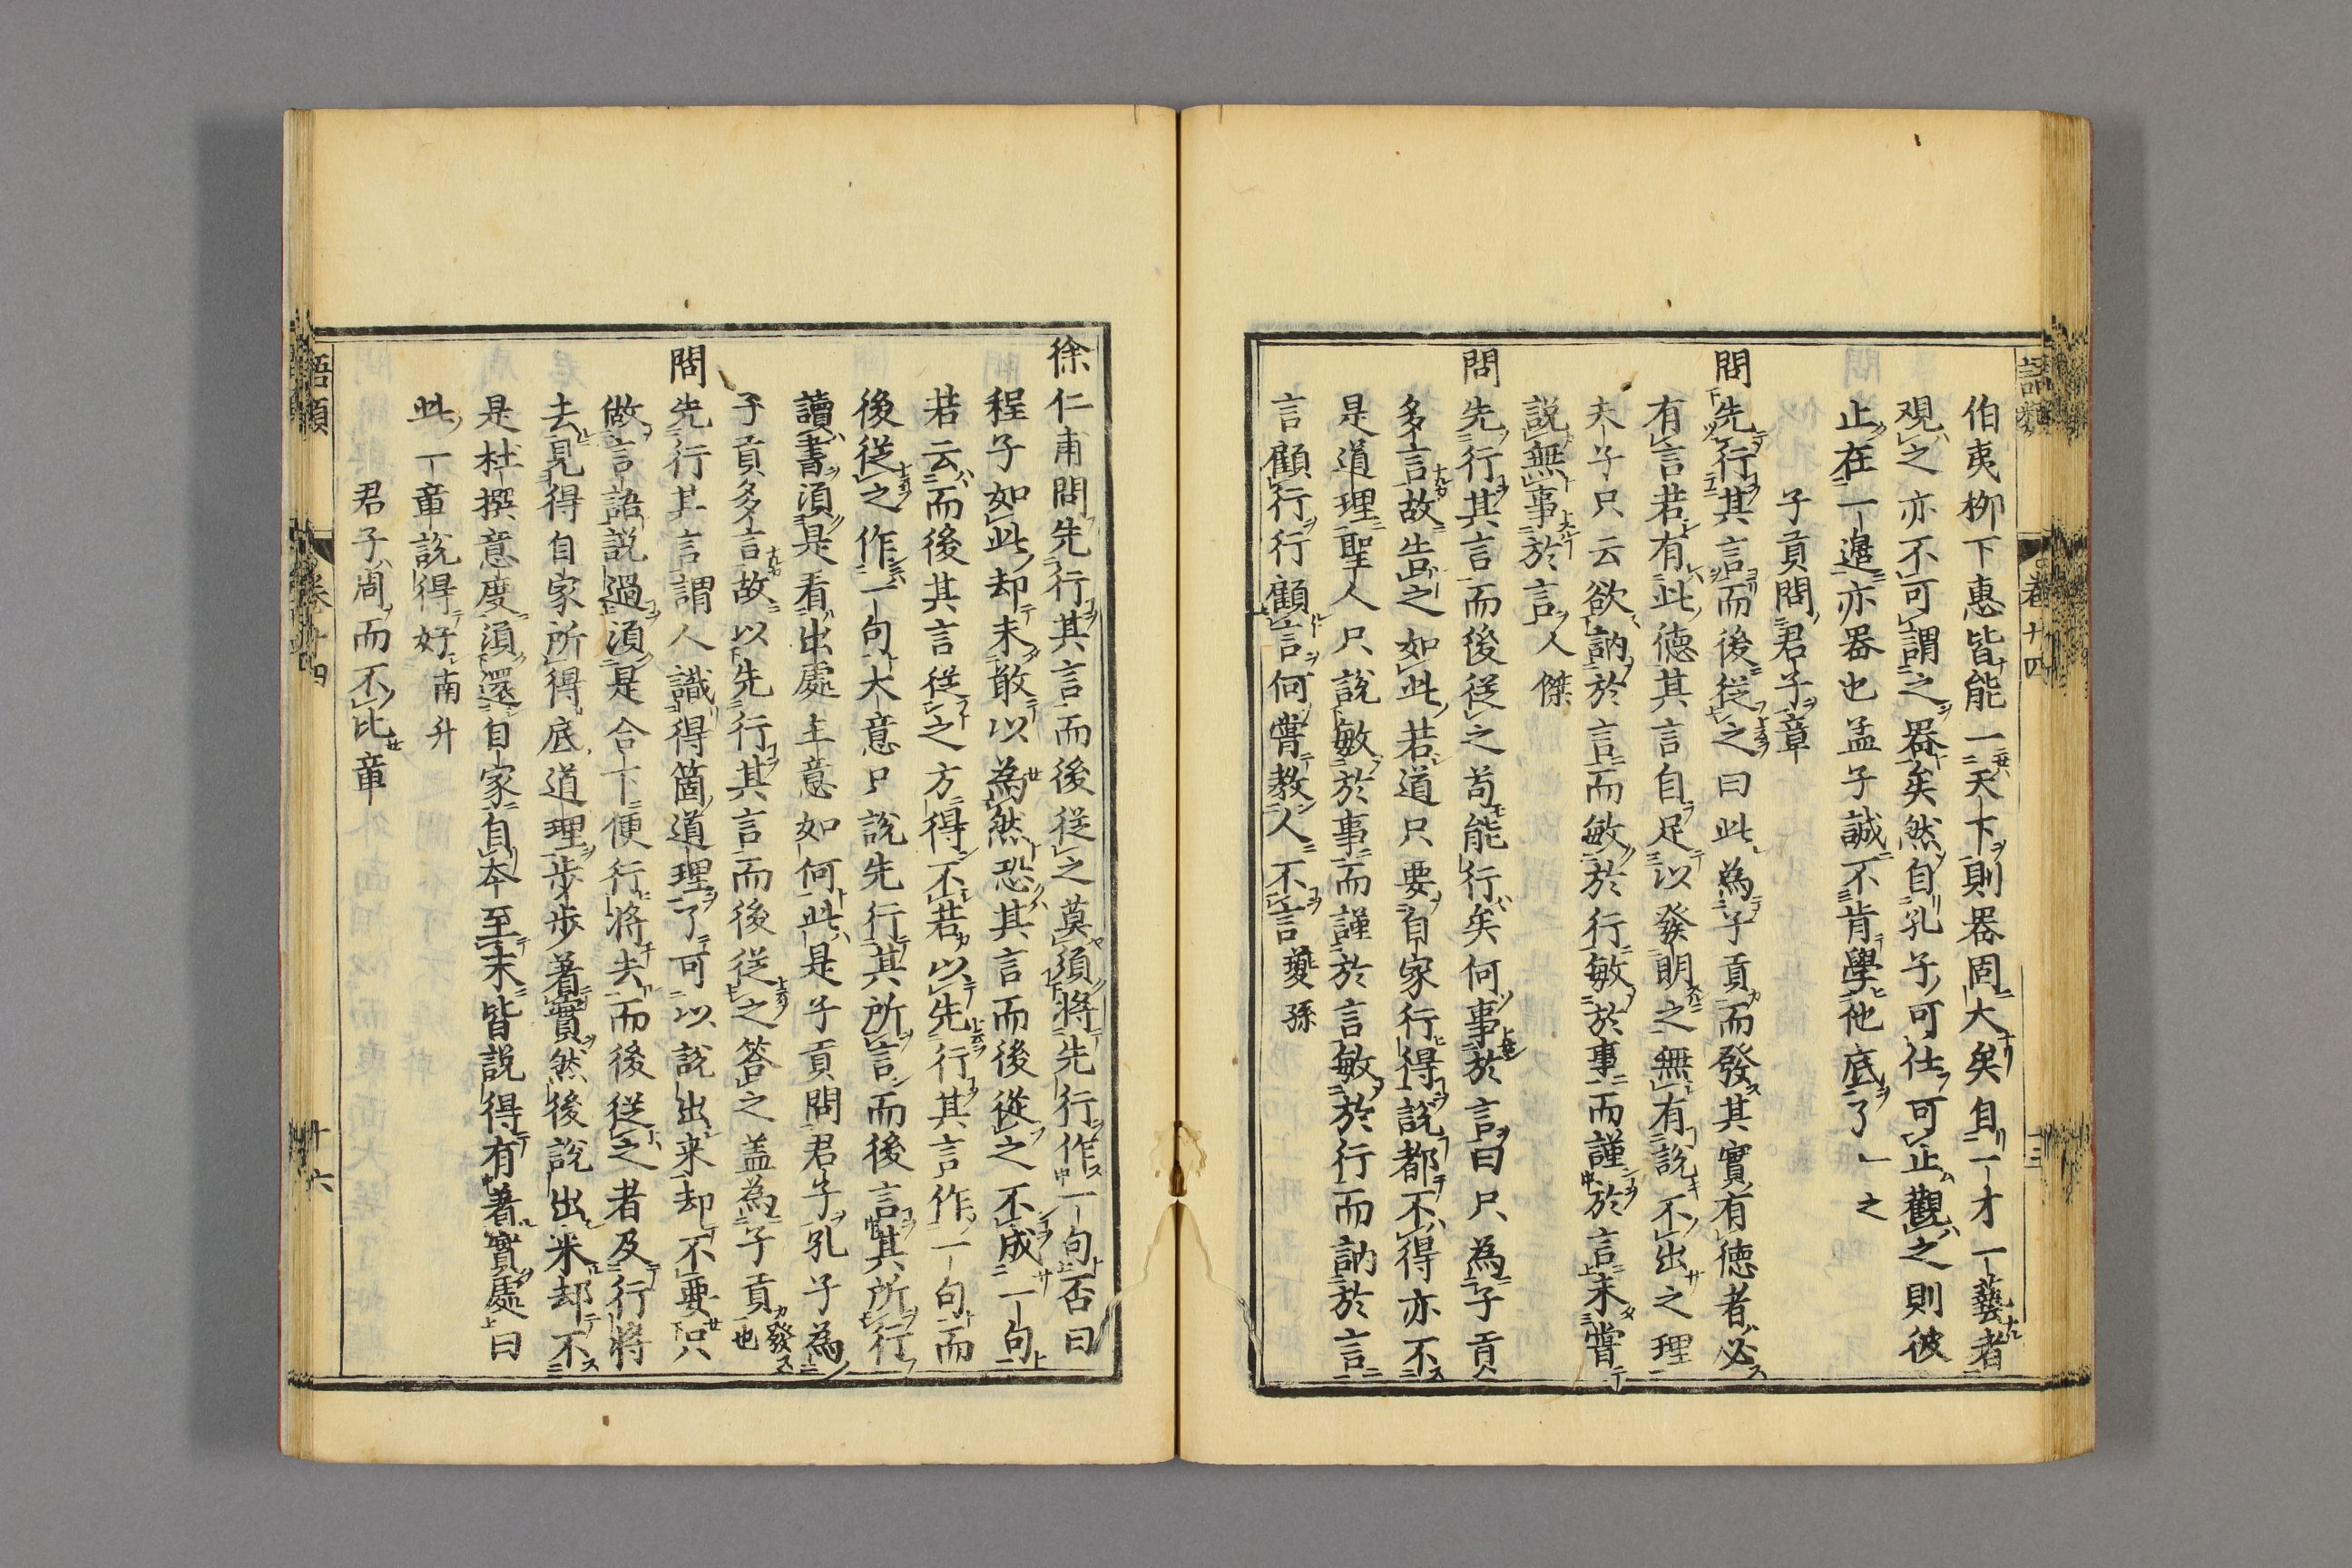 語類 卷十四
伯夷柳下惠皆能一天下則器固大矣自一才一藝者
觀之亦不可謂之器矣然自孔子可仕可止觀之則彼
止在一邊亦器也孟子誠不肯學他底了 一之
子貢問君子章
問先行其言而後從之曰此為子貢而發其實有德者必
有言若有此德其言自足以發明之無有說不出之理
夫子只云欲訥於言而敏於行敏於事而謹於言未嘗
說無事於言人傑
問先行其言而後從之苟能行矣何事於言曰只為子貢
多言故告之如此若道只要自家行得說都不得亦不
是道理聖人只說敏於事而謹於言敏於行而訥於言
言顧行行顧言何嘗教人不言夔孫
徐仁甫問先行其言而後從之莫須將先行作一句否曰
程子如此却未敢以為然恐其言而後從之不成一句
若云而後其言從之方得不若以先行其言作一句而
後從之作一句大意只說先行其所言而後言其所行
讀書須是看出處主意如何此是子貢問君子孔子為
子貢多言故以先行其言而後從之答之盖為子貢發也
問先行其言謂人識得箇道理了可以說出来却不要只
做言語說過須是合下便行將去而後從之者及行將
去見得自家所得底道理步步著實然後說出来却不
是杜撰意度須還自家自本至末皆說得有著實處曰
此一章說得好南升
君子周而不比章
語類 卷十四 十六